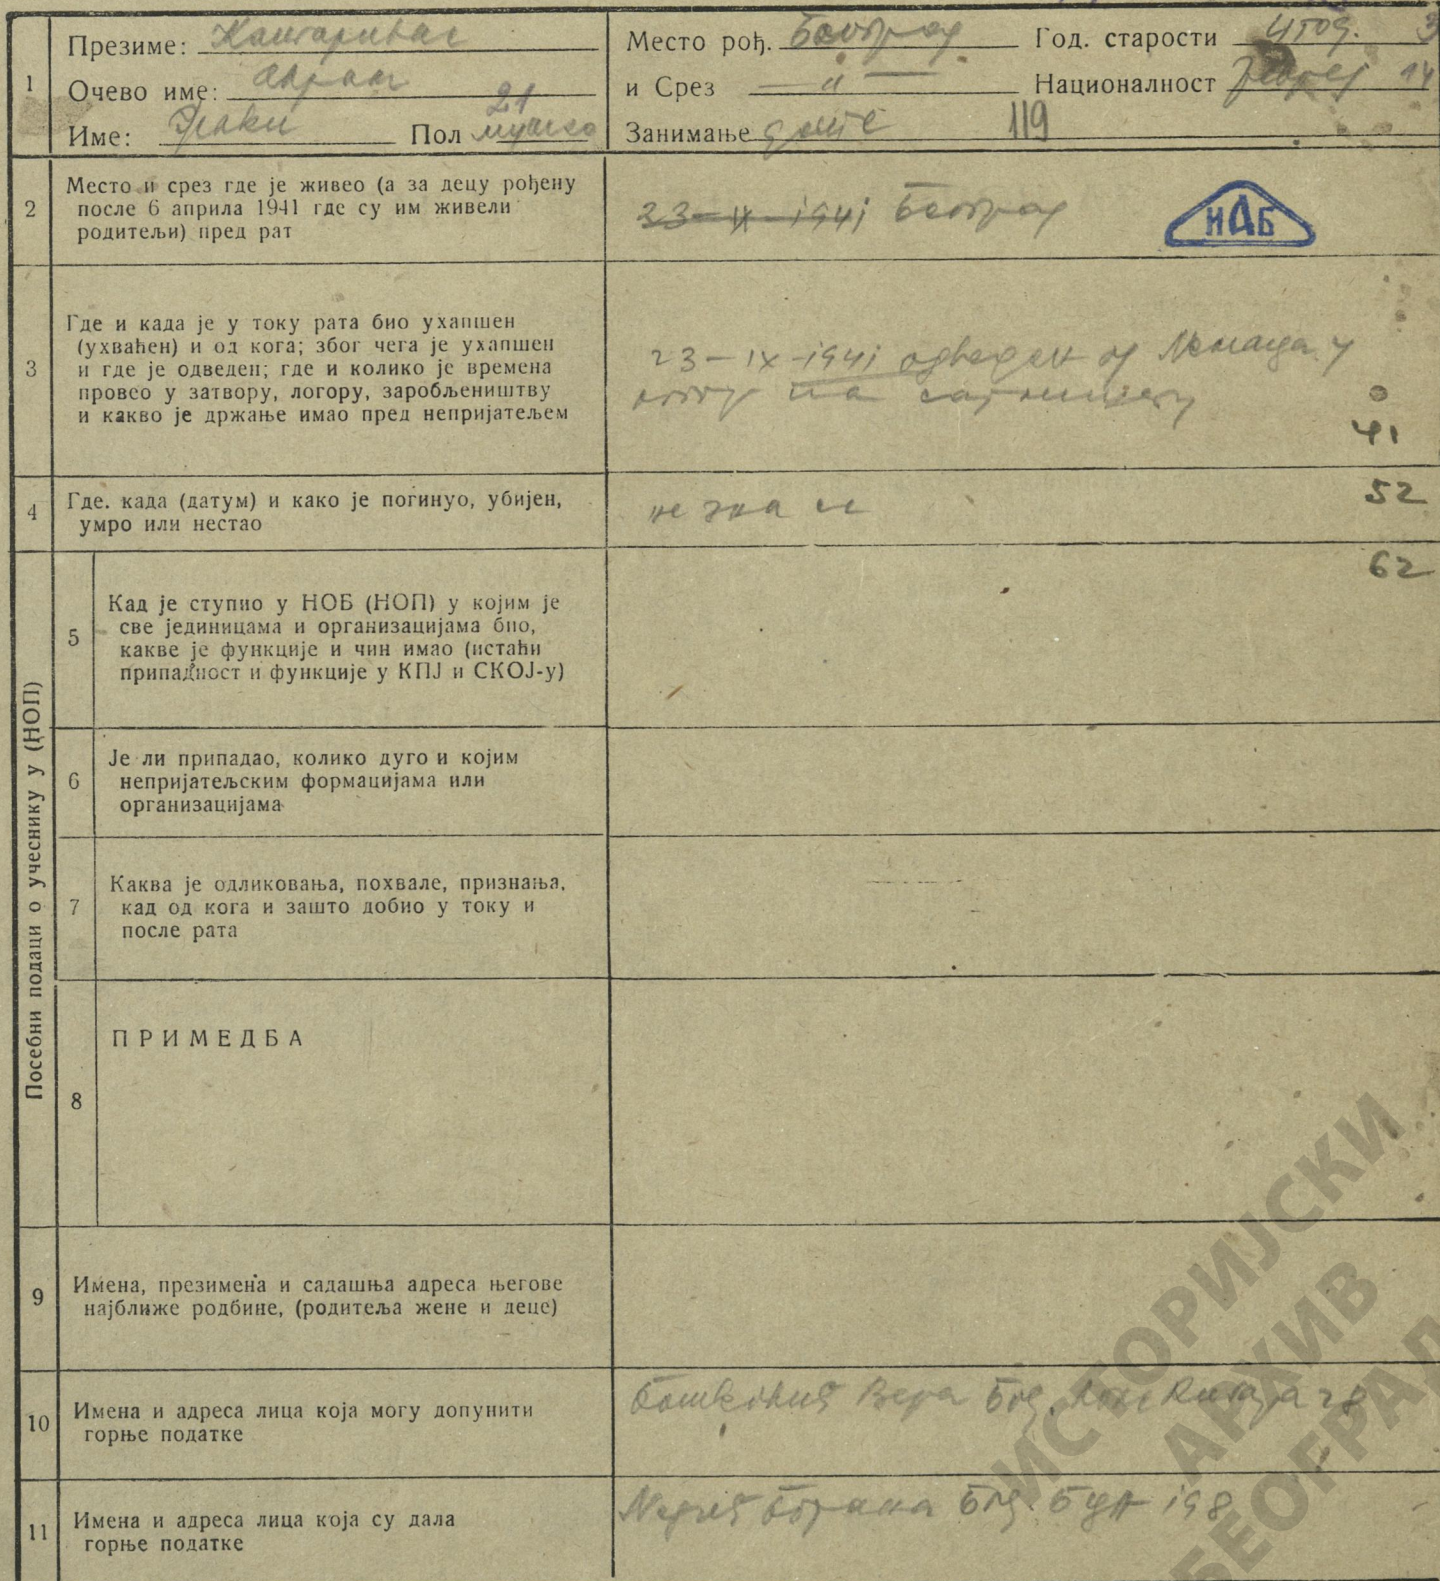 1
Презиме:
Место рођ. Београд Год. старости 4 год. 3
Очево име:
и Срез — " — Националност Јевреј 14
21
Име: Жаки Пол мушко
Занимање дете 119
2
Место и срез где је живео (а за децу рођену
после 6 априла 1941 где су им живели
родитељи) пред рат
23-IX-1941 Београд
НАБ
3
Где и када је у току рата био ухапшен
(ухваћен) и од кога; због чега је ухапшен
и где је одведен; где и колико је времена
провео у затвору, логору, заробљеништву
и какво је држање имао пред непријатељем
23-IX-1941 одведен од Немаца у
логор на сајмишту
41
4
Где. када (датум) и како је погинуо, убијен,
умро или нестао
не зна се
52
62
Посебни подаци о учеснику у (НОП)
5
Кад је ступио у НОБ (НОП) у којим је
све јединицама и организацијама био,
какве је функције и чин имао (истаћи
припадност и функције у КПЈ и СКОЈ-у)
6
Је ли припадао, колико дуго и којим
непријатељским формацијама или
организацијама
7
Каква је одликовања, похвале, признања,
кад од кога и зашто добио у току и
после рата
8
ПРИМЕДБА
9
Имена, презимена и садашња адреса његове
најближе родбине, (родитеља жене и деце)
10
Имена и адреса лица која могу допунити
горње податке
Вера Бгд. 28
11
Имена и адреса лица која су дала
горње податке
Бгд. 198
ИСТОРИЈСКИ
АРХИВ
БЕОГРАД